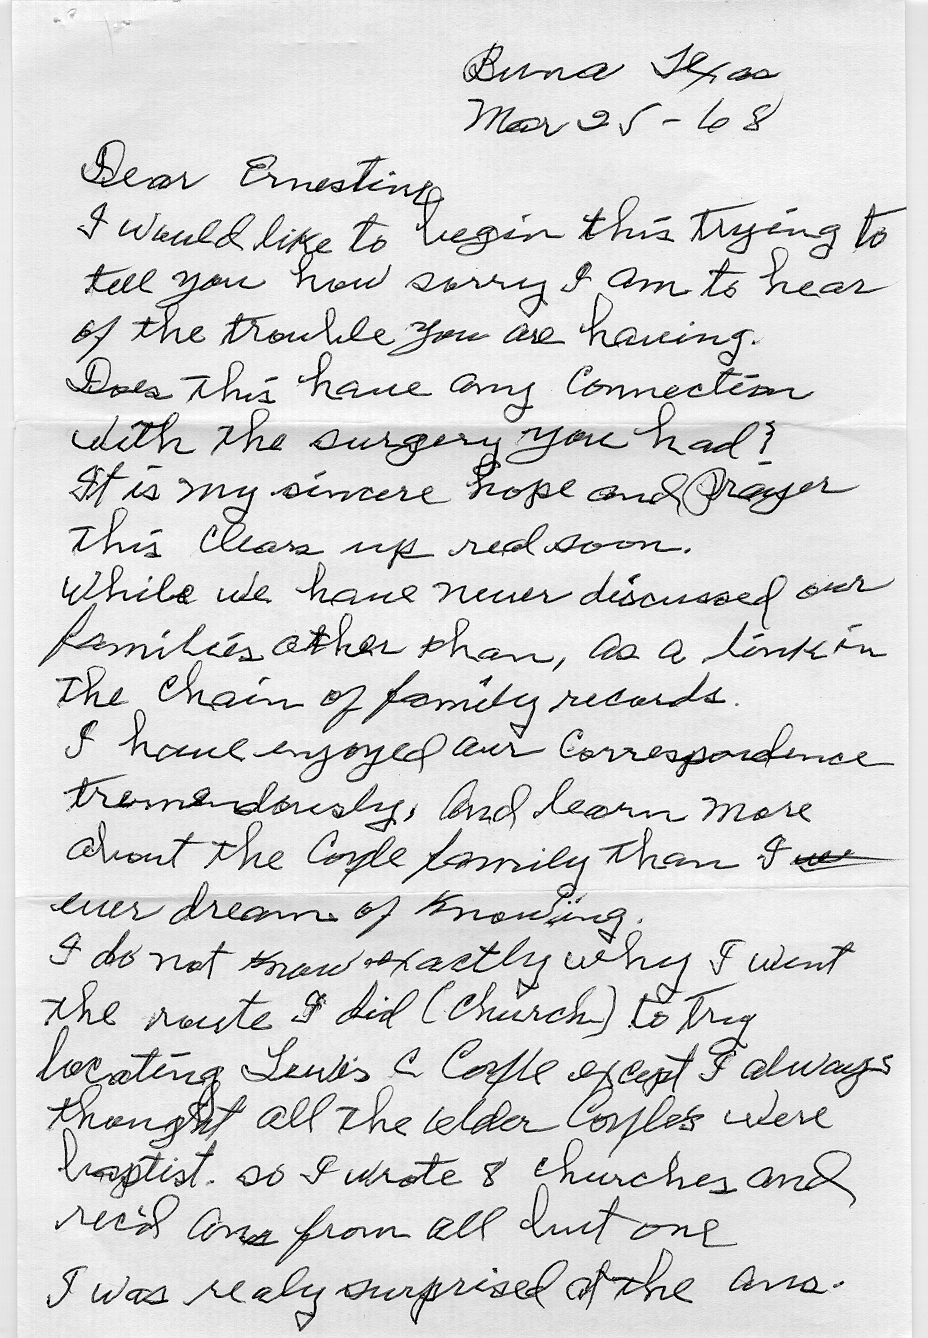 Buna Texas
Mar 25 - 68
Dear Ernestine
I would like to begin this trying to
tell you how sorry I am to hear
of the trouble you are having.
Does this have any connection
with the surgery you had?
It is my sincere hope and Prayer
this clears up real soon.
While we have never discussed our
families other than, as a link in
the chain of family records.
I have enjoyed our correspondence
tremendously, and learn more
about the Coyle family than I
ever dream of knowing.
I do not know exactly why I went
the route I did (church) to try
locating Lewis C Coyle except I always
thought all the elder Coyle's were
baptist. so I wrote 8 churches and
rec'd ans from all but one
I was realy surprised at the ans.